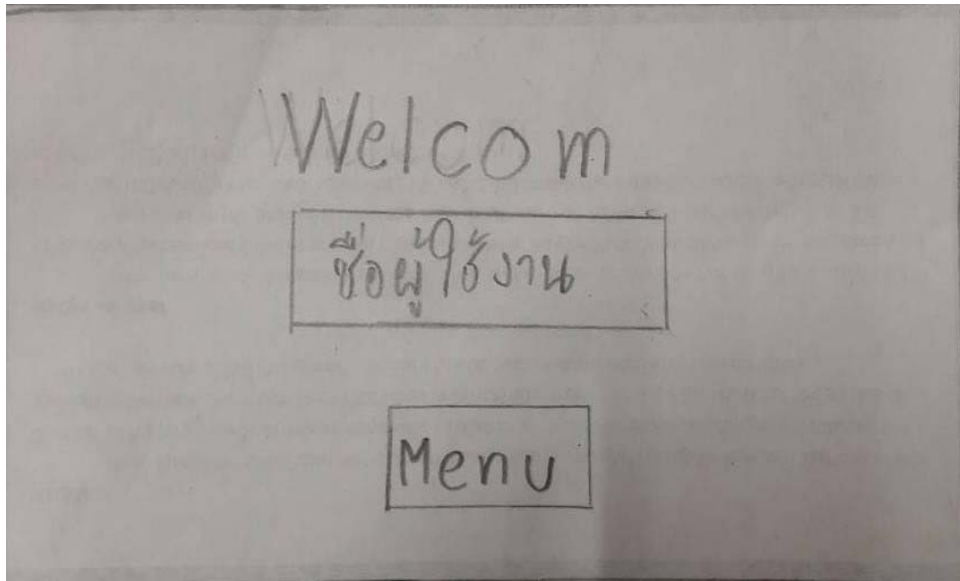 Welcom
ชื่อผู้ใช้งาน
Menu